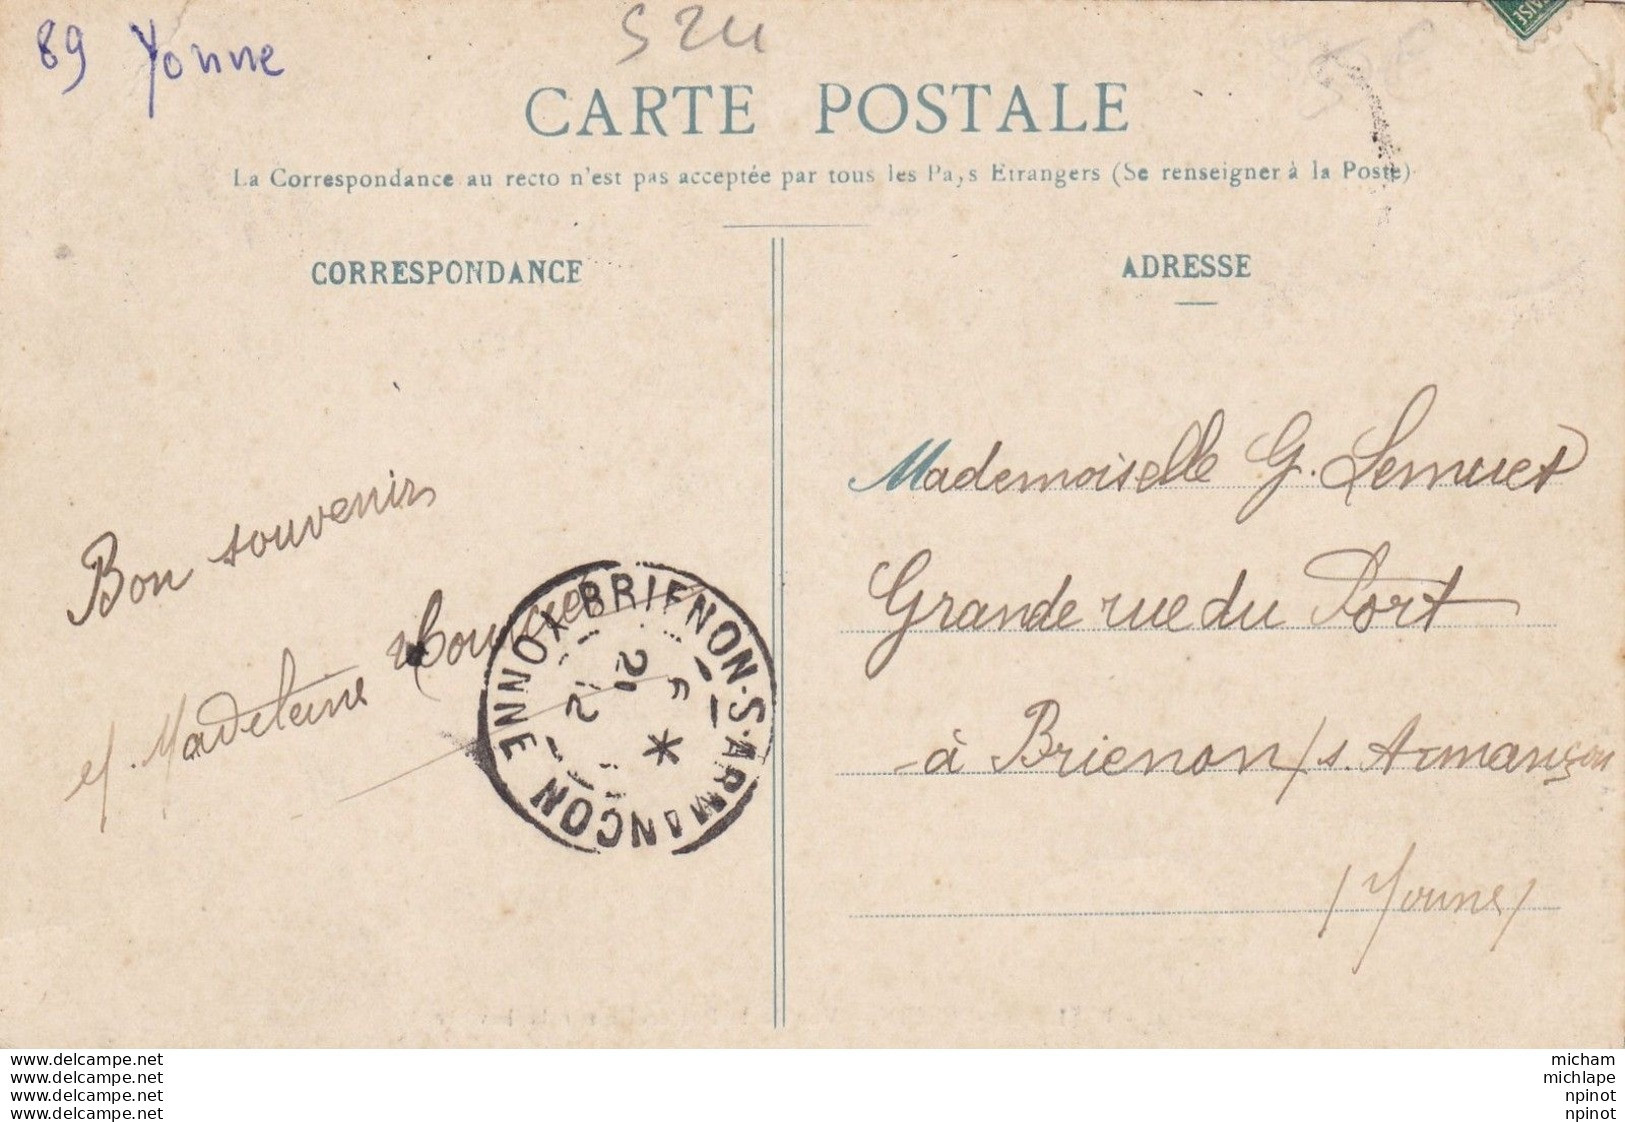 89 Yonne
S24
CARTE POSTALE
La Correspondance au recto n'est pas acceptée par tous les Pays Etrangers (Se renseigner à la Poste)
CORRESPONDANCE
Bon souvenir
Madeleine
BRIENON-S-ARMANÇON YONNE
21
12
ADRESSE
Mademoiselle G. Lemuet
Grande rue du Port
à Brienon/s. Armançon
/Yonne/
www.delcampe.net
www.delcampe.net
www.delcampe.net
www.delcampe.net
micham
michlape
npinot
npinot